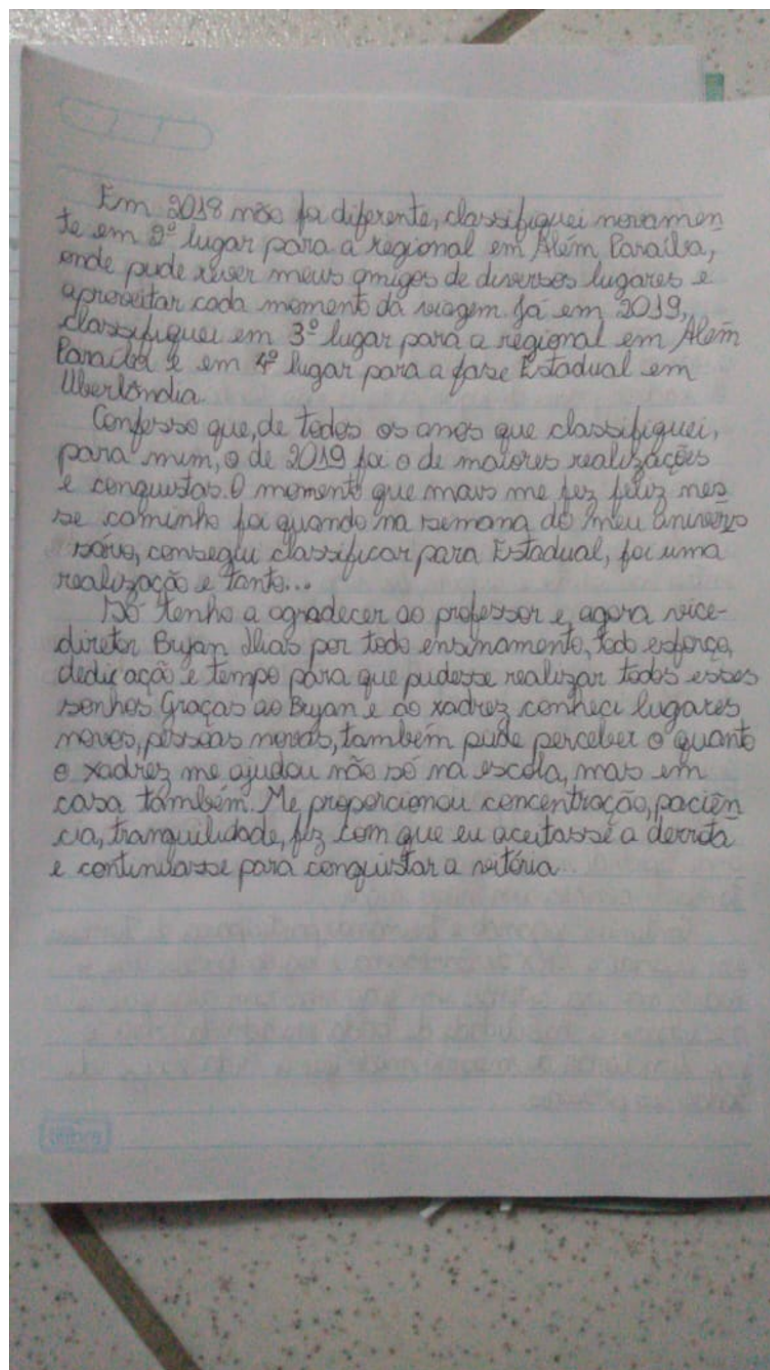 Em 2018 não foi diferente, classifiquei novamen
te em 2º lugar para a regional em Além Paraíba,
onde pude rever meus amigos de diversos lugares e
aproveitar cada momento da viagem. Já em 2019,
classifiquei em 3º lugar para a regional em Além
Paraíba e em 4º lugar para a fase Estadual em
Uberlândia.
Confesso que, de todos os anos que classifiquei,
para mim, o de 2019 foi o de maiores realizações
e conquistas. O momento que mais me fez feliz nes
se caminho foi quando na semana do meu anivers
sário, consegui classificar para Estadual, foi uma
realização e tanto...
Só tenho a agradecer ao professor e, agora vice-
diretor Bryan por todo ensinamento, todo esforço,
dedicação e tempo para que pudesse realizar todos esses
sonhos. Graças ao Bryan e ao xadrez conheci lugares
novos, pessoas novas, também pude perceber o quanto
o xadrez me ajudou não só na escola, mas em
casa também. Me proporcionou concentração, paciên
cia, tranquilidade, fez com que eu aceitasse a derrota
e continuasse para conquistar a vitória.